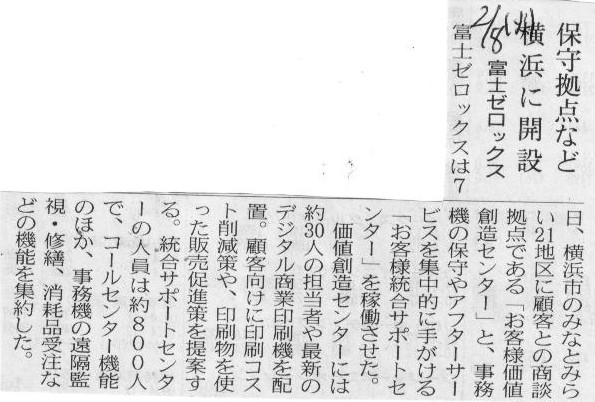 保守拠点など
横浜に開設
2/8(火)
富士ゼロックス
富士ゼロックスは7
日、横浜市のみなとみら
い21地区に顧客との商談
拠点である「お客様価値
創造センター」と、事務
機の保守やアフターサー
ビスを集中的に手がける
「お客様統合サポートセ
ンター」を稼働させた。
価値創造センターには
約30人の担当者や最新の
デジタル商業印刷機を配
置。顧客向けに印刷コス
ト削減策や、印刷物を使
った販売促進策を提案す
る。統合サポートセンタ
ーの人員は約800人
で、コールセンター機能
のほか、事務機の遠隔監
視・修繕、消耗品受注な
どの機能を集約した。